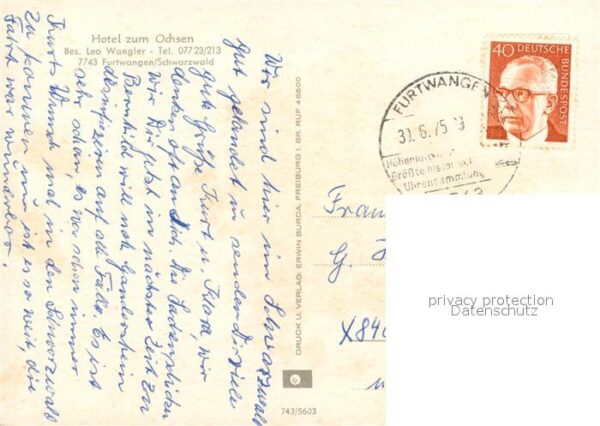 Hotel zum Ochsen
Bes. Leo Wangler - Tel. 07723/213
7743 Furtwangen/Schwarzwald
Wir sind hier im Schwarzwald
gut gelandet u. senden Dir viele
gute Grüße Kurt u. Klara, wir
denken oft an Dich. Die
wir Dir jetzt in nächster Zeit zu
Bernhild will noch
desinfizieren auf alle Fälle. Es ist
sehr schön, es war schon immer
Kurts Wunsch mal in den Schwarzwald
zu kommen nun ist es so weit, die
Fahrt war wunderbar.
DRUCK U. VERLAG: ERWIN BURDA, FREIBURG I. BR. RUF 46800
b
743/5603
40 DEUTSCHE BUNDESPOST
FURTWANGEN
30.6.75
Größte histor.
Uhrensammlung
Frau
G.
X840
privacy protection
Datenschutz